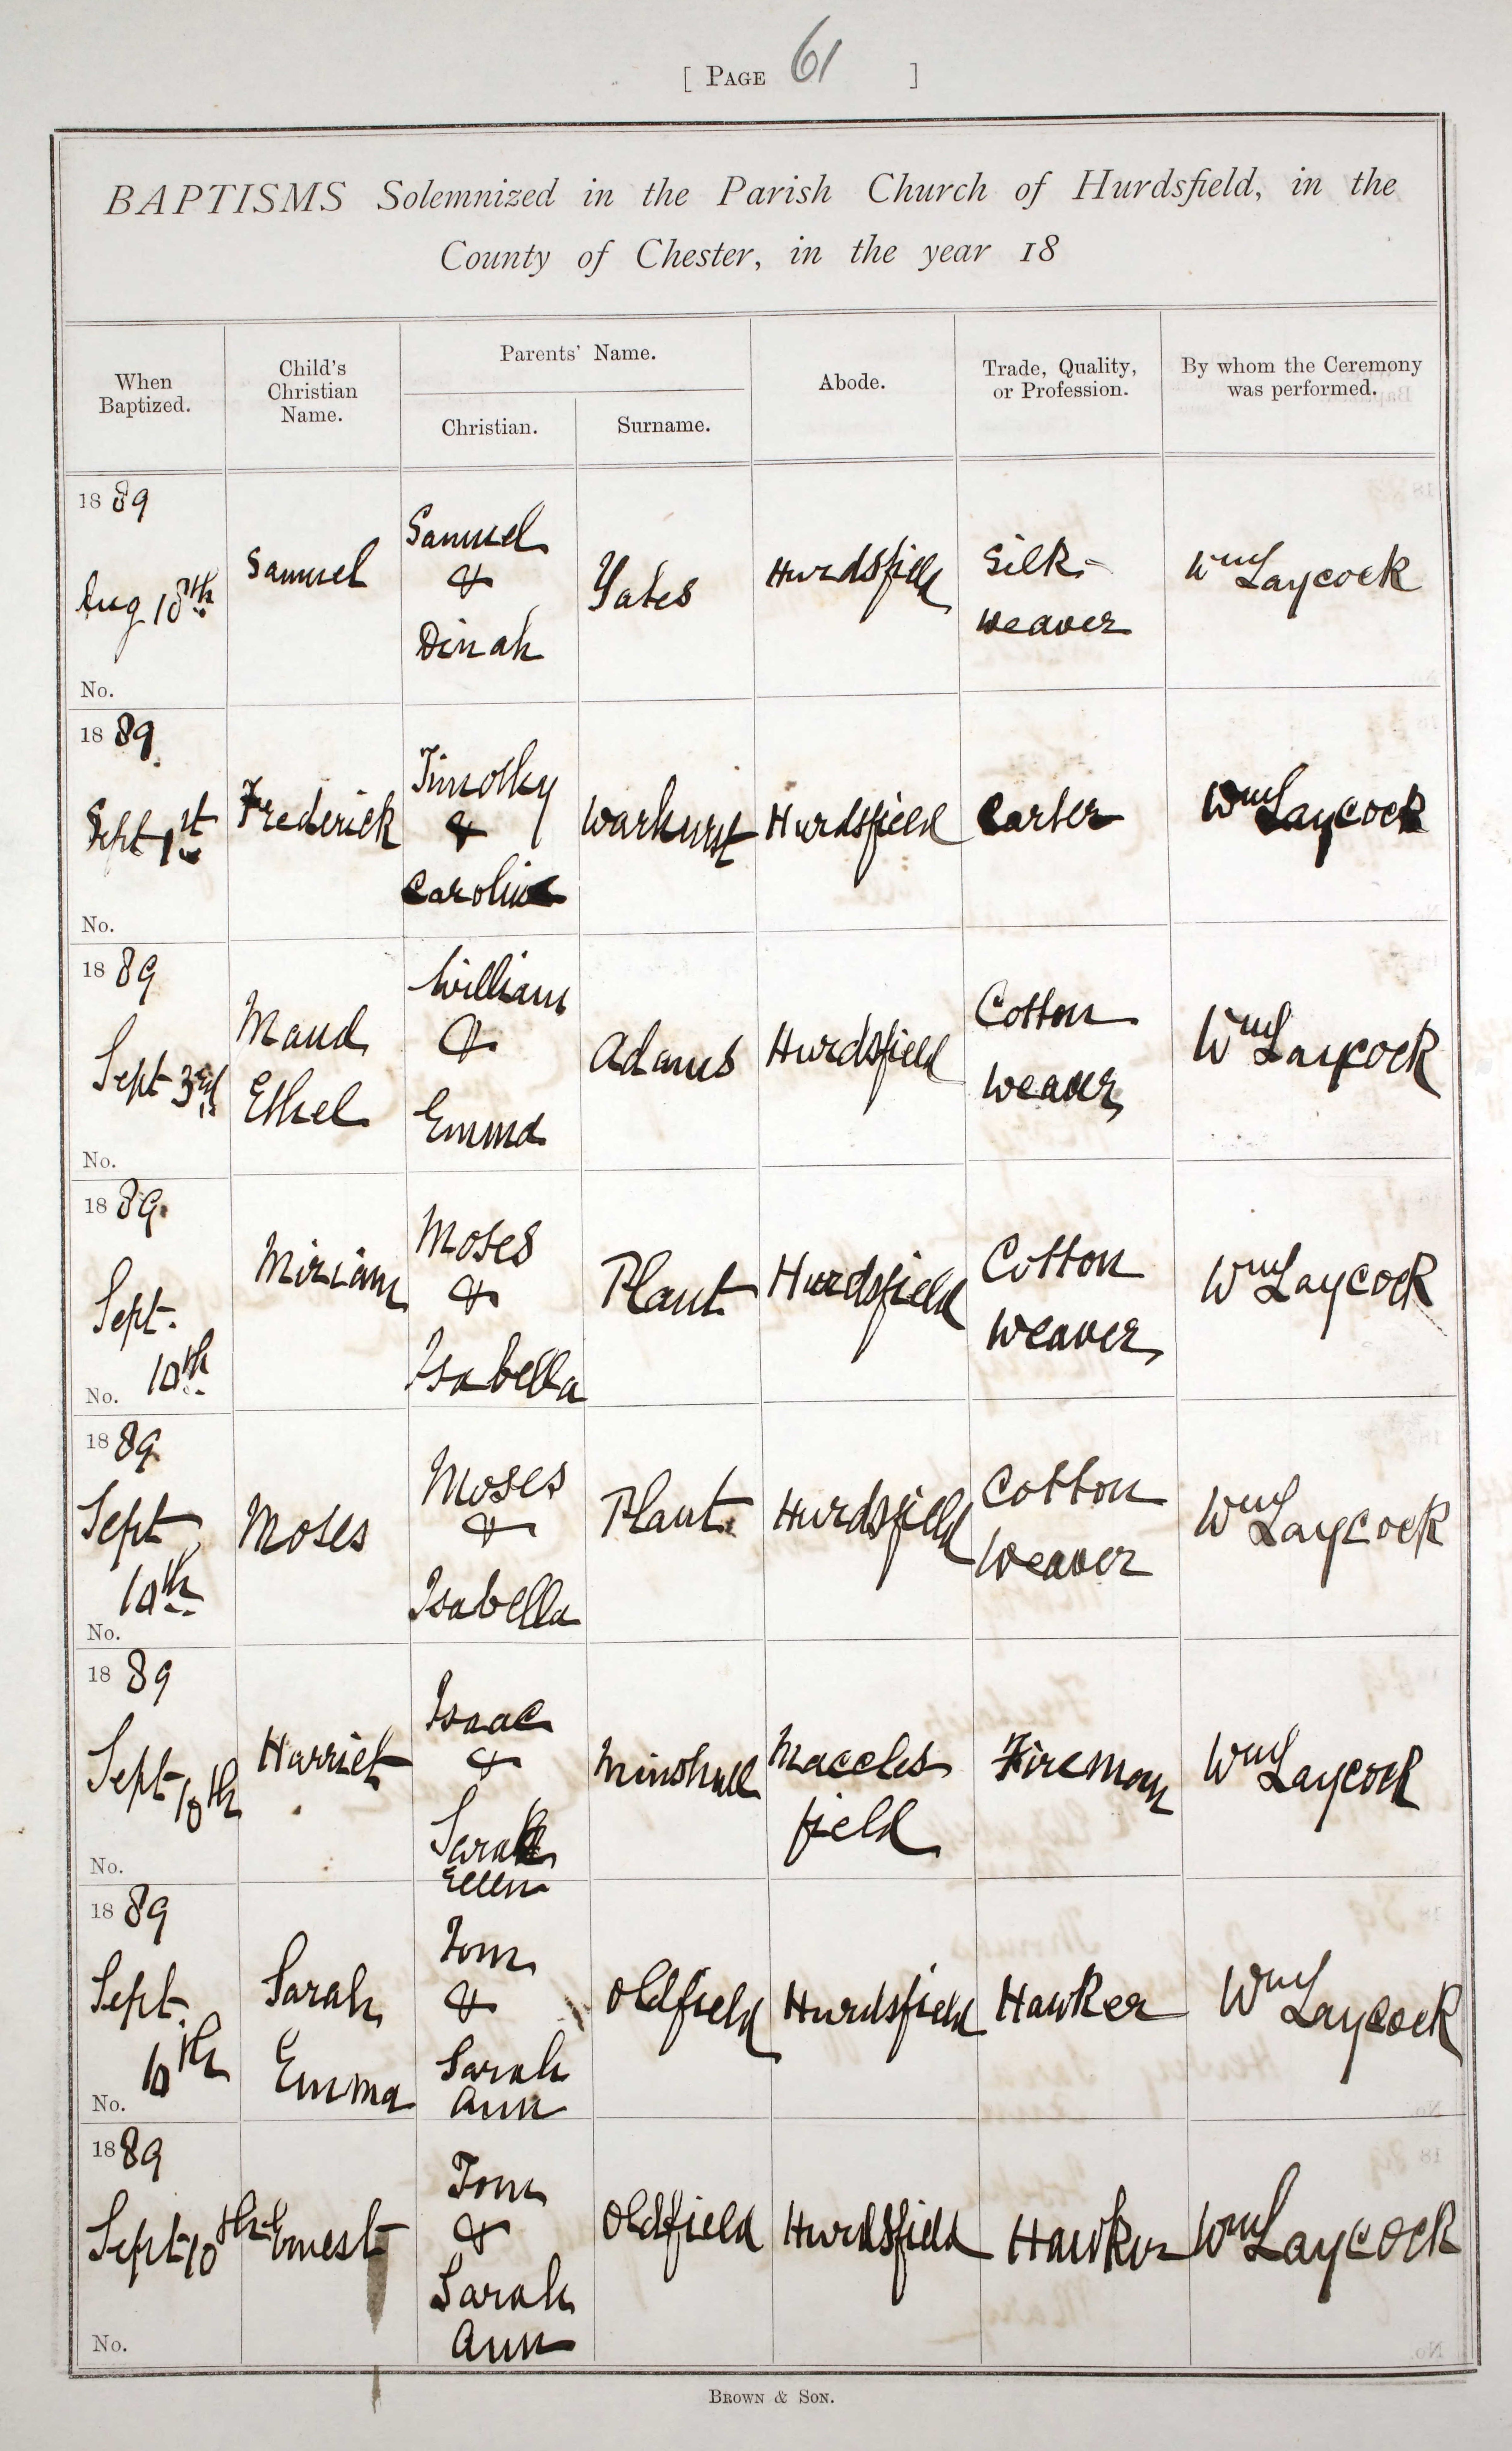 [ PAGE 61 ]
BAPTISMS Solemnized in the Parish Church of Hurdsfield, in the
County of Chester, in the year 18
When
Baptized.
Child's
Christian
Name.
Parents' Name.
Christian.
Surname.
Abode.
Trade, Quality,
or Profession.
By whom the Ceremony
was performed.
1889
Aug 18th
No.
Samuel
Samuel
&
Dinah
Yates
Hurdsfield
Silk-
weaver
Wm Laycock
1889
Sept 1st
No.
Frederick
Timothy
&
Caroline
Warhurst
Hurdsfield
Carter
Wm Laycock
1889
Sept 3rd
No.
Maud
Ethel
William
&
Emma
Adams
Hurdsfield
Cotton
Weaver
Wm Laycock
1889
Sept.
10th
No.
Miriam
Moses
&
Isabella
Plant
Hurdsfield
Cotton
Weaver
Wm Laycock
1889
Sept
10th
No.
Moses
Moses
&
Isabella
Plant
Hurdsfield
Cotton
Weaver
Wm Laycock
1889
Sept 10th
No.
Harriet
Isaac
&
Sarah
Ellen
Minshull
Maccles
field
Fireman
Wm Laycock
1889
Sept.
10th
No.
Sarah
Emma
Tom
&
Sarah
Ann
Oldfield
Hurdsfield
Hawker
Wm Laycock
1889
Sept 10th
No.
Ernest
Tom
&
Sarah
Ann
Oldfield
Hurdsfield
Hawker
Wm Laycock
BROWN & SON.